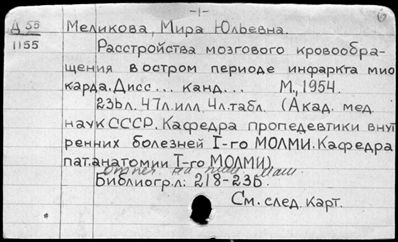 -1-
Д 55 Меликова, Мира Юльевна.
1155
Расстройства мозгового кровообра-
щения в остром периоде инфаркта мио
карда. Дисс... канд... М., 1954.
236л. 47л.илл. 4л.табл. (Акад. мед.
наук СССР. Кафедра пропедевтики внут
ренних болезней I-го МОЛМИ. Кафедра
пат.анатомии I-го МОЛМИ)
Библиогр.л: 218-236.
См. след. карт.